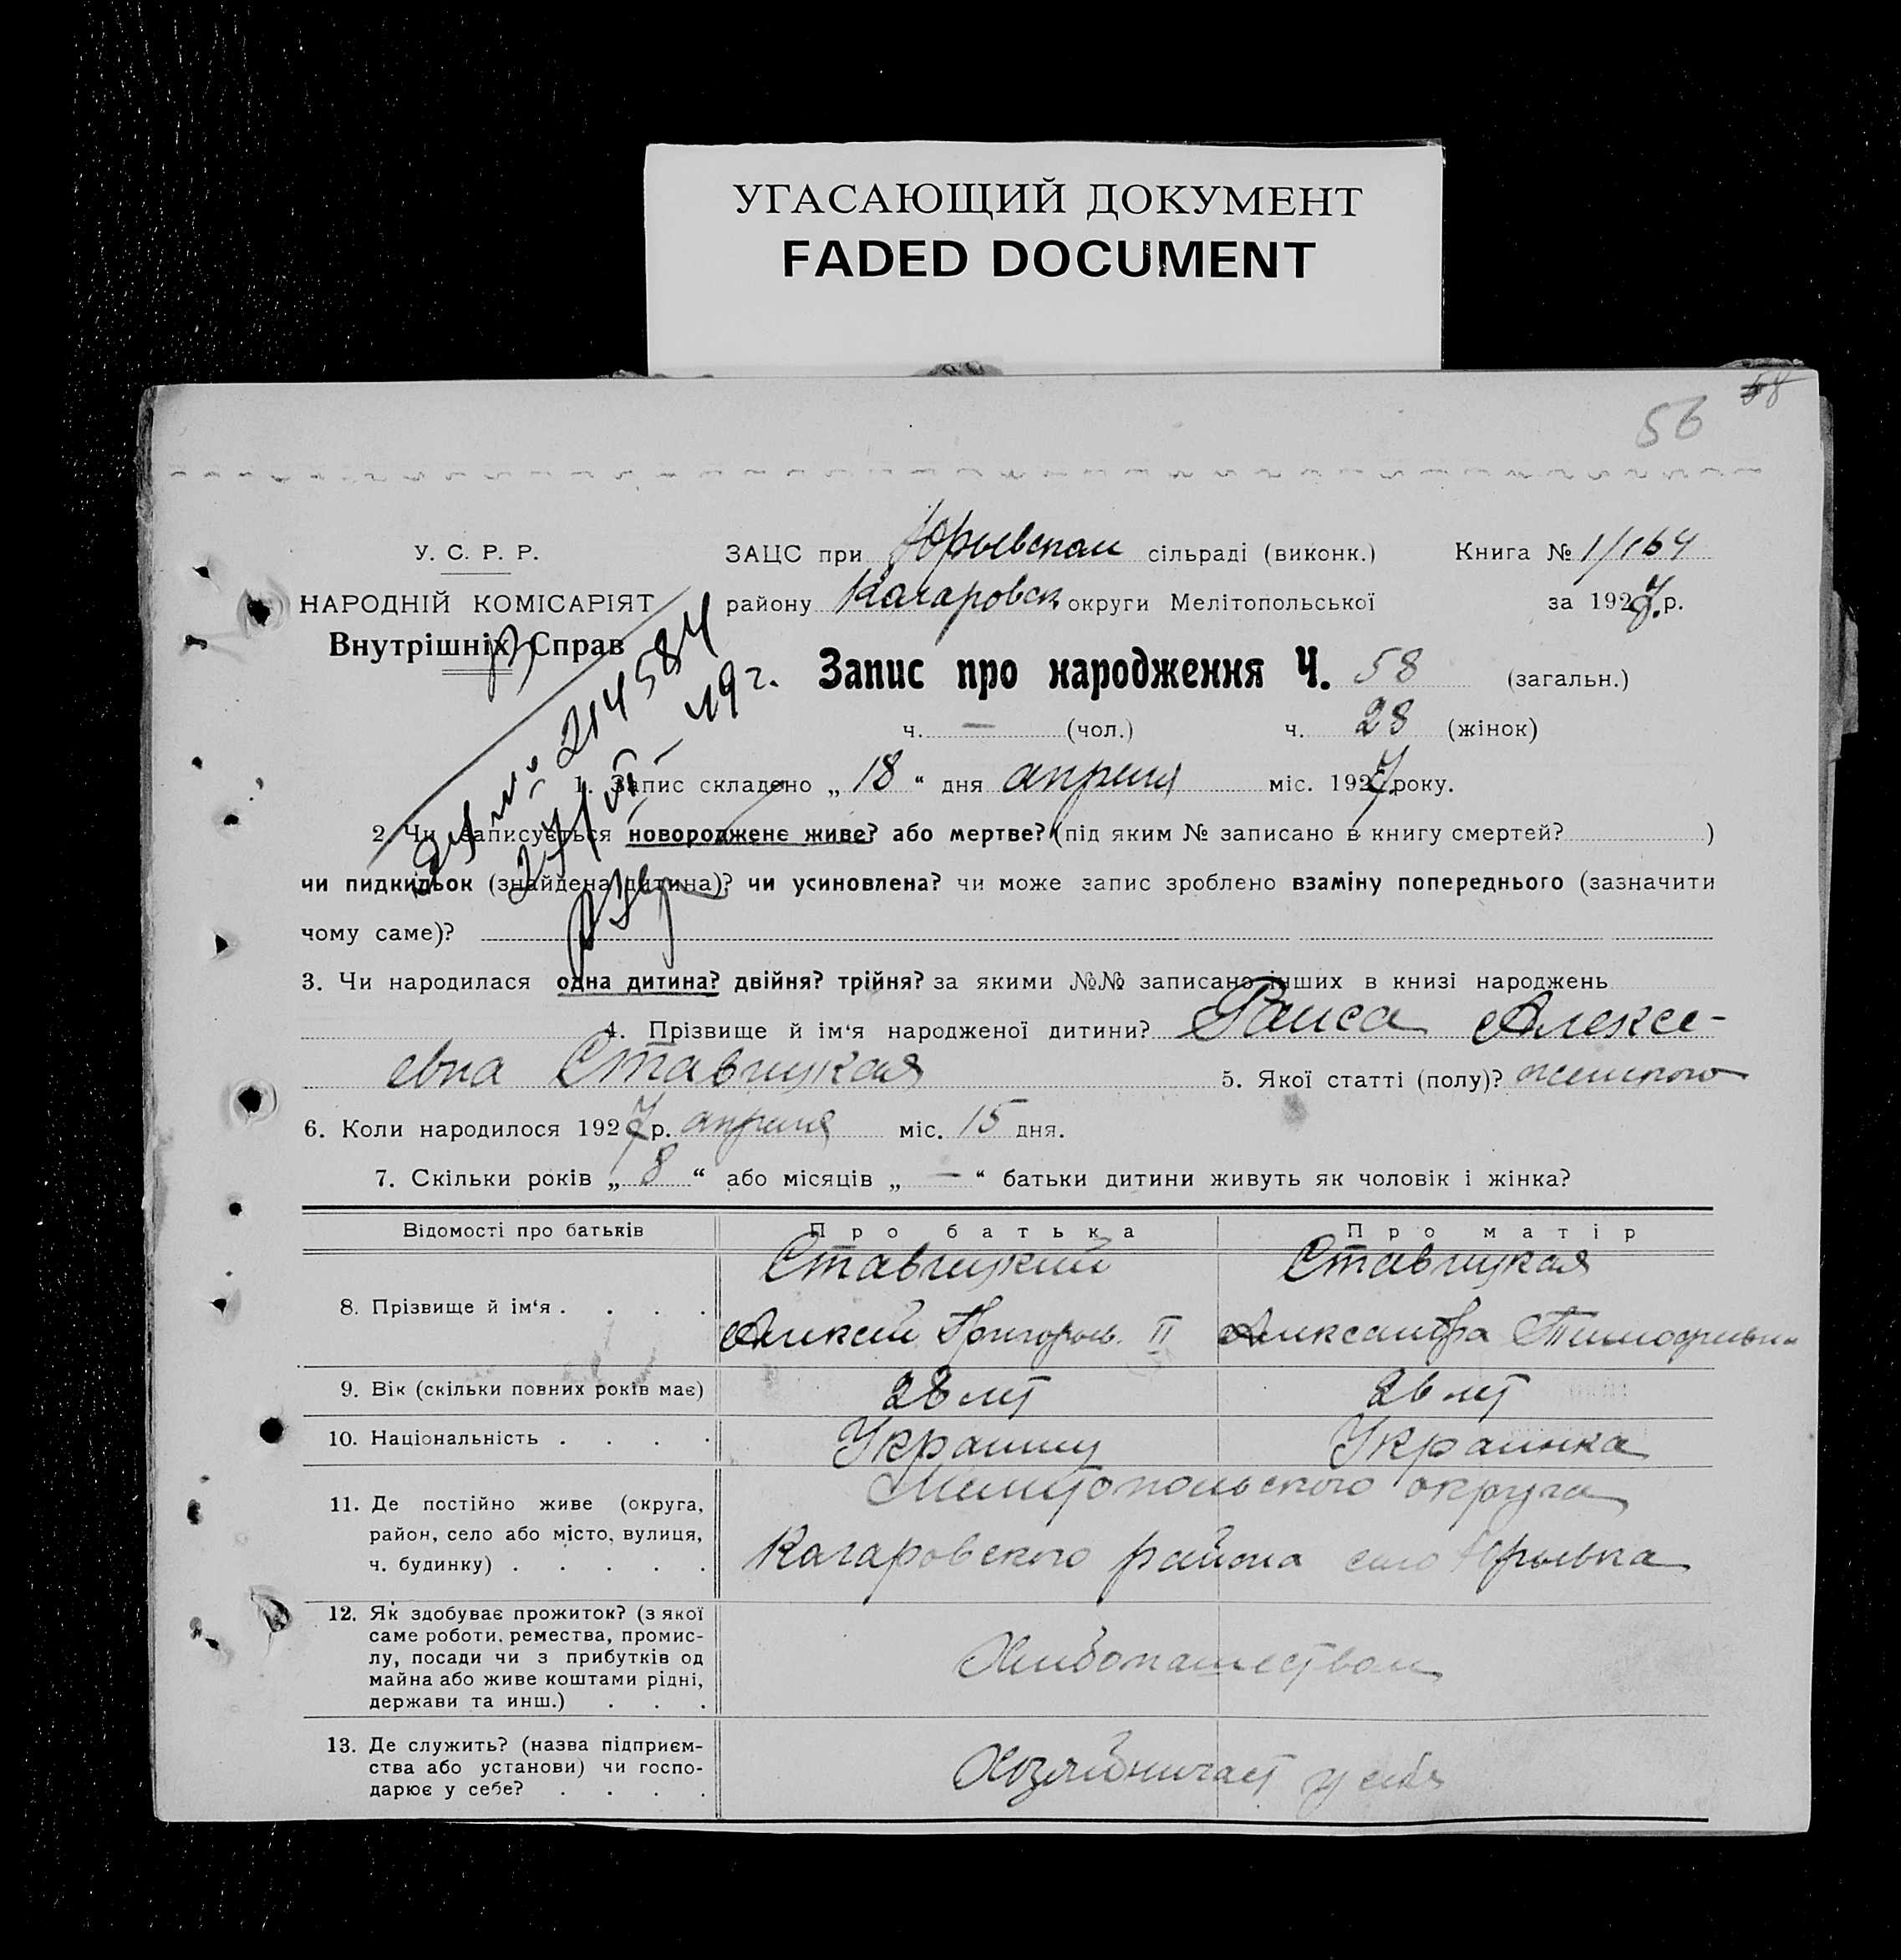 УГАСАЮЩИЙ ДОКУМЕНТ
FADED DOCUMENT
58
56
У. С. Р. Р.
НАРОДНІЙ КОМІСАРІЯТ
Внутрішніх Справ
ЗАЦС при Юрьевском сільраді (виконк.) Книга № 1/164
району округи Мелітопольської за 1927 р.
214584
19 г.
Запис про народження Ч. 58 (загальн.)
ч. — (чол.) ч. 28 (жінок)
1. Запис складено „ 18 “ дня апреля міс. 1927 року.
2. Чи записується новороджене живе? або мертве? (під яким № записано в книгу смертей? )
чи пидкидьок (знайдена дитина)? чи усиновлена? чи може запис зроблено взаміну попереднього (зазначити
чому саме)?
3. Чи народилася одна дитина? двійня? трійня? за якими №№ записано інших в книзі народжень
4. Прізвище й ім‘я народженої дитини? Раиса Алексе-
евна Ставицкая 5. Якої статті (полу)? женского
6. Коли народилося 1927 р. апреля міс. 15 дня.
7. Скільки років „ 8 “ або місяців „ — “ батьки дитини живуть як чоловік і жінка?
Відомості про батьків Про батька Про матір
8. Прізвище й ім‘я . . . . Ставицкий Ставицкая
Алексей Григорьев. II Александра Тимофеевна
9. Вік (скільки повних років має) 28 лет 26 лет
10. Національність . . . . Украинец Украинка
11. Де постійно живе (округа, район, село або місто, вулиця, ч. будинку) . . . . . Мелитопольского округа
района село Юрьевка
12. Як здобуває прожиток? (з якої саме роботи, ремества, промислу, посади чи з прибутків од майна або живе коштами рідні, держави та инш.) . . . Хлебопашеством
13. Де служить? (назва підприємства або установи) чи господарює у себе? . . . . Хозяйничает у себя